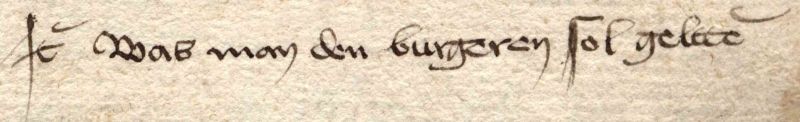 It̄ Was man den burgeren sol geltē